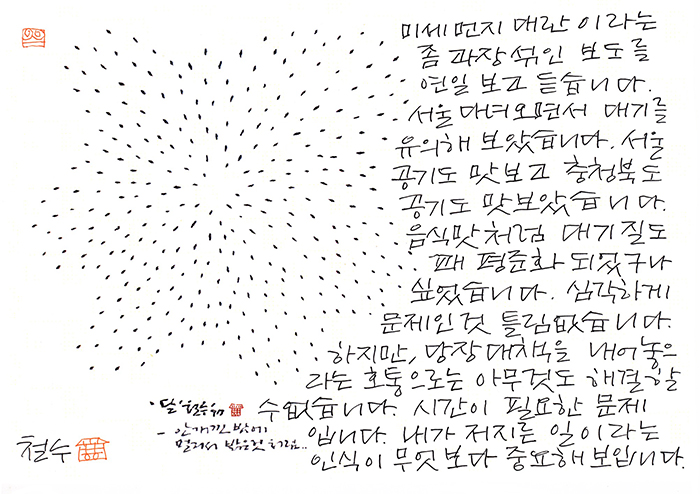 미세먼지 대란이라는
좀 과장 섞인 보도를
연일 보고 듣습니다.
서울 다녀오면서 대기를
유의해 보았습니다. 서울
공기도 맛보고 충청북도
공기도 맛보았습니다.
음식맛처럼 대기질도
꽤 평준화 되었구나
싶었습니다. 심각하게
문제인 것 틀림없습니다.
하지만, 당장 대책을 내어놓으
라는 호통으로는 아무것도 해결할
수 없습니다. 시간이 필요한 문제
입니다. 내가 저지른 일이라는
인식이 무엇보다 중요해 보입니다.
'달' 철수
- 안개낀 밤에
멀리서 박은 것처럼..
철수